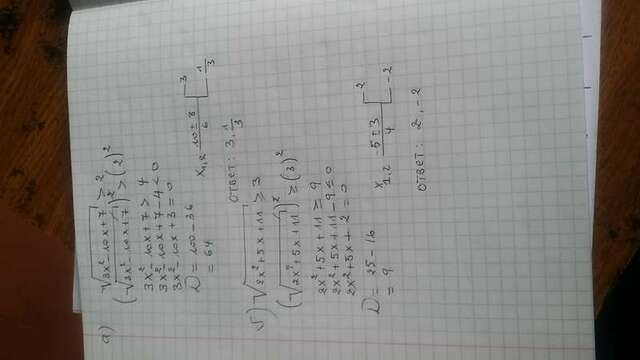 а) √3x² - 10x + 7 ≥ 2
(√3x² - 10x + 7)² > (2)²
3x² - 10x + 7 > 4
3x² - 10x + 7 - 4 < 0
3x² - 10x + 3 = 0
D = 100 - 36
= 64
x₁,₂ 10 ± 8 / 6 3
1/3
ответ: 3, 1/3
б) √2x² + 5x + 11 ≥ 3
(√2x² + 5x + 11)² ≥ (3)²
2x² + 5x + 11 ≥ 9
2x² + 5x + 11 - 9 ≤ 0
2x² + 5x + 2 = 0
D = 25 - 16
= 9
x₁,₂ -5 ± 3 / 4 2
-2
ответ: 2, -2